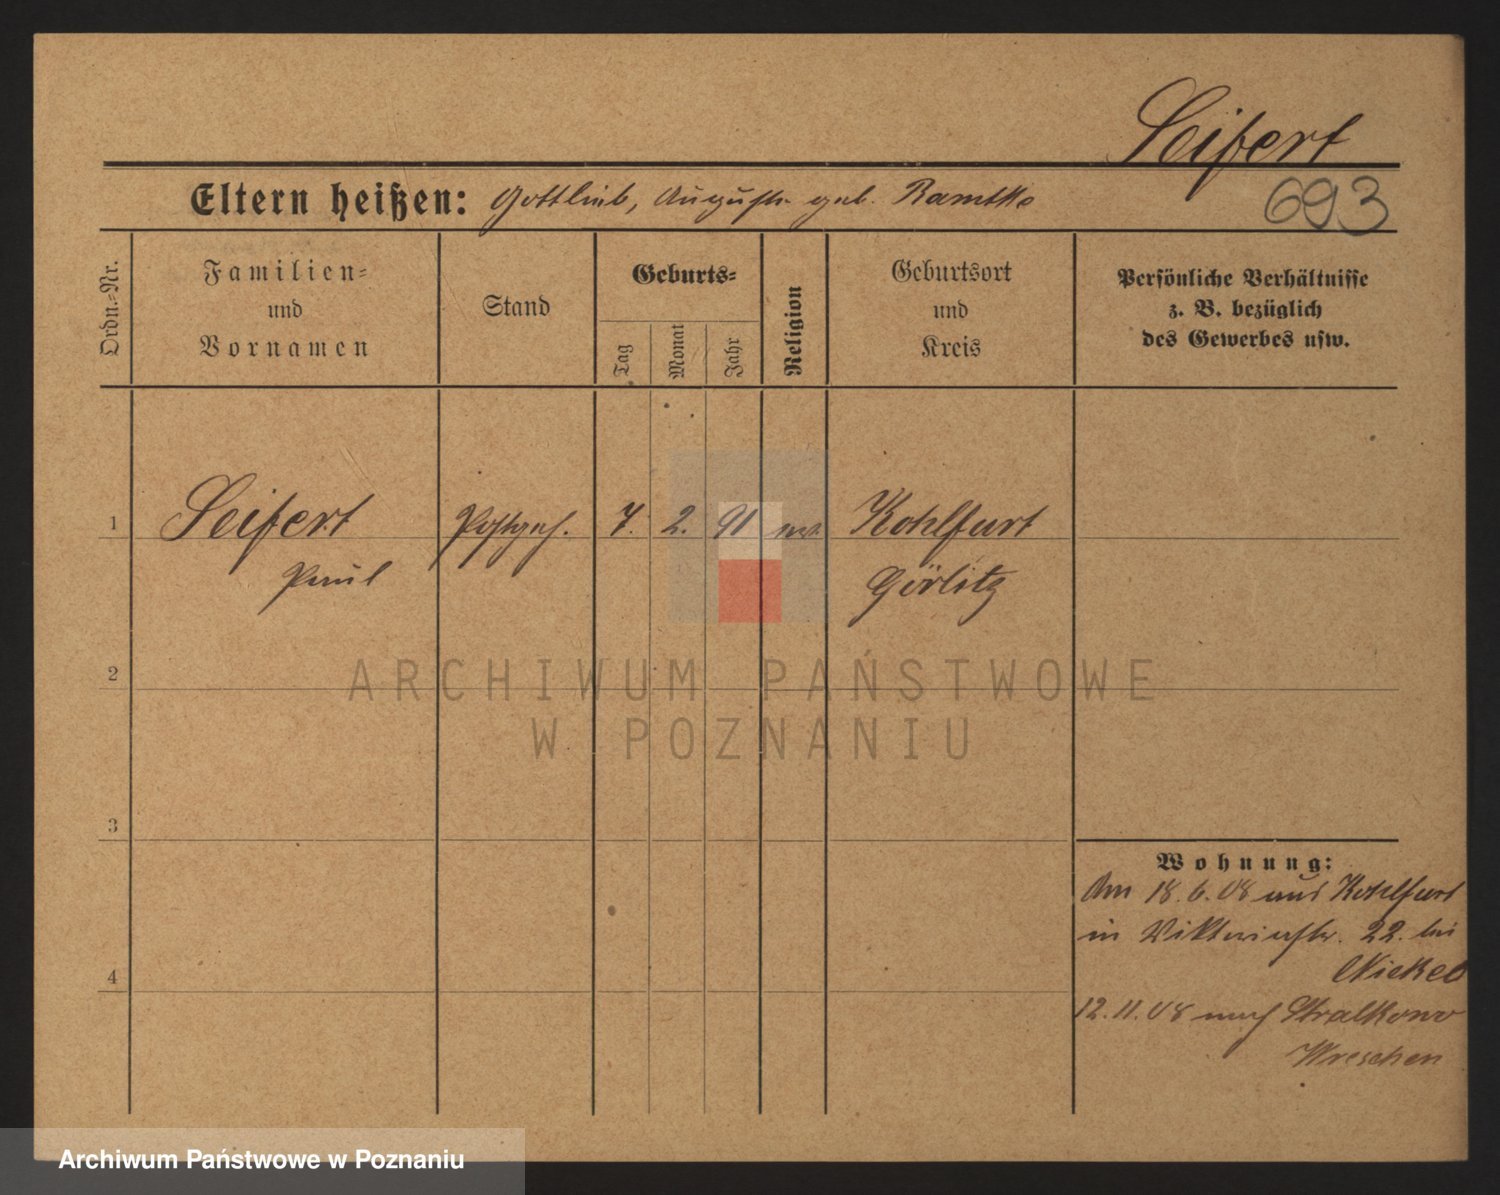 Seifert
Eltern heißen: Gottlieb, Auguste geb. Ramtke
693
Ordn.=Nr.
Familien=
und
Vornamen
Stand
Geburts=
Tag
Monat
Jahr
Religion
Geburtsort
und
Kreis
Persönliche Verhältnisse
z. B. bezüglich
des Gewerbes usw.
1
Seifert
Paul
Postgeh.
7. 2. 91
Kohlfurt
Görlitz
2
3
4
Wohnung:
Am 18.6.08 aus Kohlfurt
in Viktoriastr. 22. bei
Nickel
12.11.08 nach Stralkowo
Wreschen
ARCHIWUM PAŃSTWOWE
W POZNANIU
Archiwum Państwowe w Poznaniu